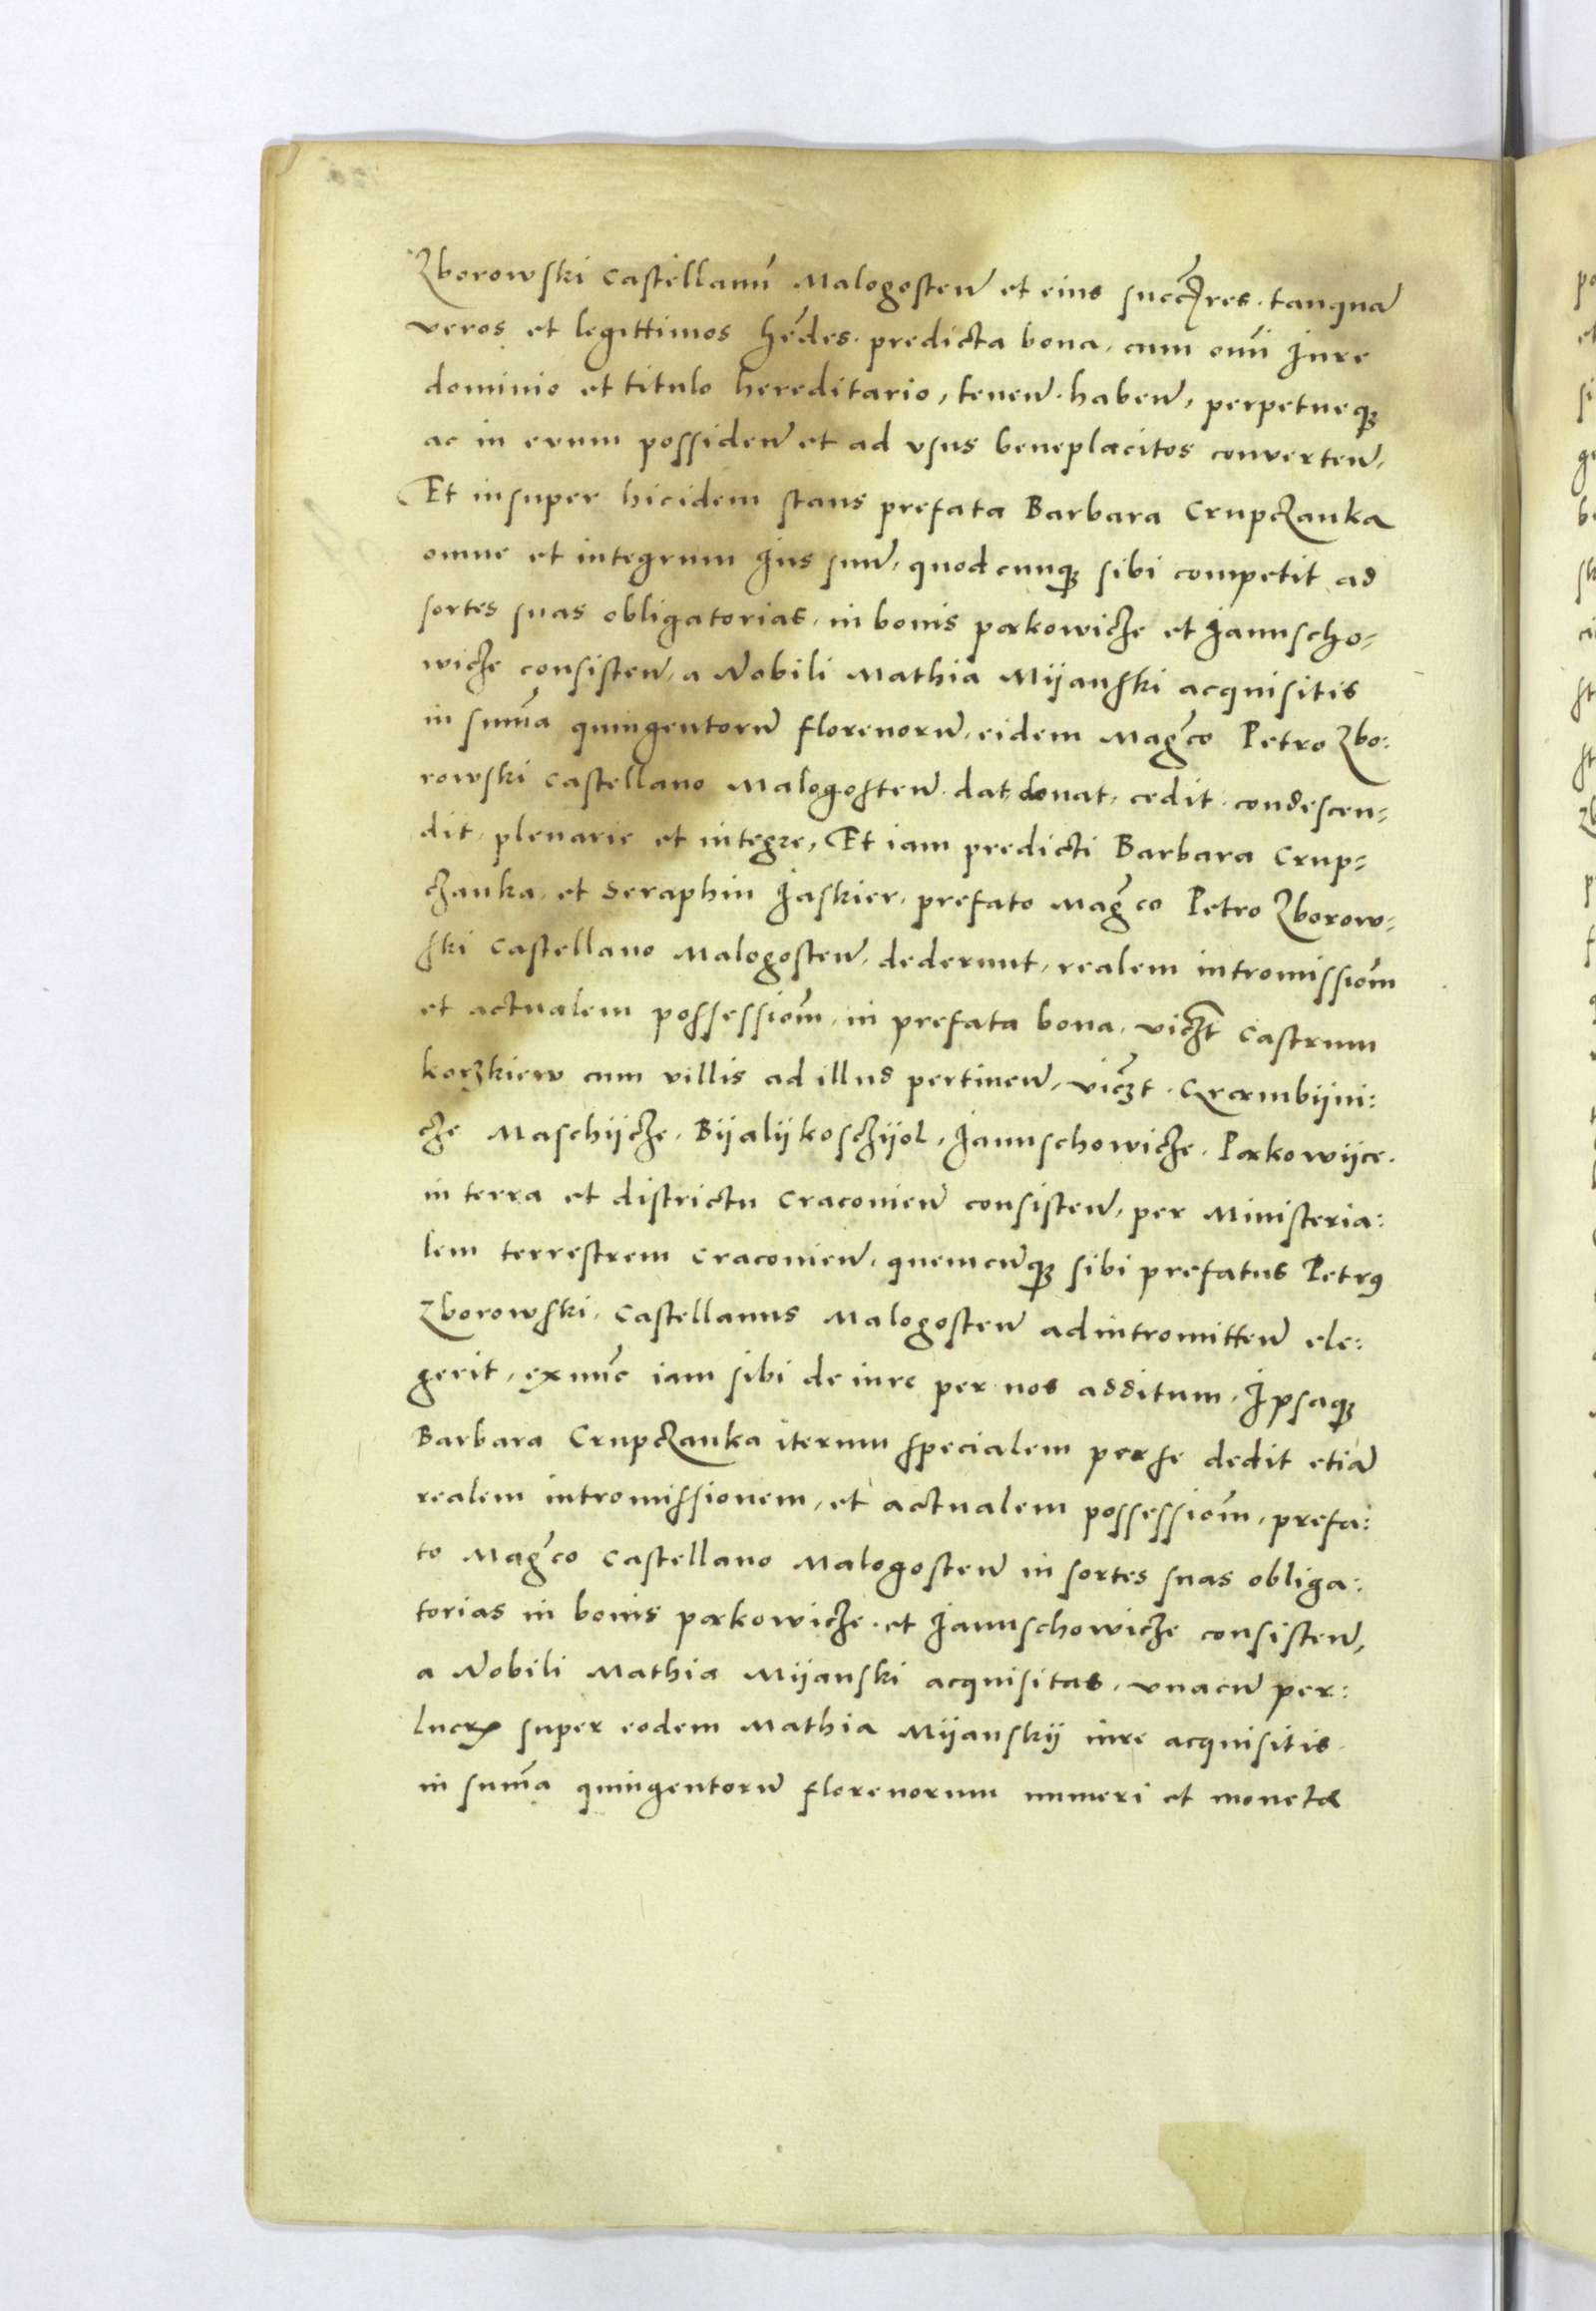 Zborowski Castellanū Malogosteñ et eius succ̄res. tanquā
veros et legittimos hēdes. predicta bona, cum om̄i Jure
dominio et titulo hereditario, teneñ. habeñ, perpetueqȝ
ac in evum possideñ et ad vsus beneplacitos converteñ,
Et insuper hicidem stans prefata Barbara Crupczanka
omne et integrum Jus suū, quodcunqȝ sibi competit ad
sortes suas obligatorias, in bonis pækowicze et Januscho-
wicze consisteñ, a Nobili Mathia Mijanski acquisitis
in sum̄a quingentorū florenorū, eidem Mag̃co Petro Zbo:
rowski Castellano Malogosteñ. dat, donat, cedit. condescen-
dit, plenarie et integre, Et iam predicti Barbara Crup-
czanka, et Seraphin Jaskier, prefato Mag̃co Petro Zborow-
ski Castellano Malogosteñ, dederunt, realem intromissiōm
et actualem possessiōm, in prefata bona, viczt Castrum
korzkiew cum villis ad illud pertineñ, viczt. Græmbijni:
cze Maschijcze, Bijalijkosczijol, Januschowicze, Pækowijce.
in terra et districtu Cracovieñ consisteñ, per Ministeria:
lem terrestrem Cracovieñ, quemcūqȝ sibi prefatus Petrꝰ
Zborowski, Castellanus Malogosteñ ad intromitteñ ele:
gerit, ex nūc iam sibi de iure per nos additum. Ipsaqȝ
Barbara Crupczanka iterum specialem per se dedit etiā
realem intromissionem, et actualem possessiōm, prefa:
to Mag̃co Castellano Malogosteñ in sortes suas obliga:
torias in bonis pækowicze. et Januschowicze consisteñ,
a Nobili Mathia Mijanski acquisitas, vnacū per:
lucrꝭ super eodem Mathia Mijanskij iure acquisitis
in sum̄a quingentorū florenorum numeri et monetæ